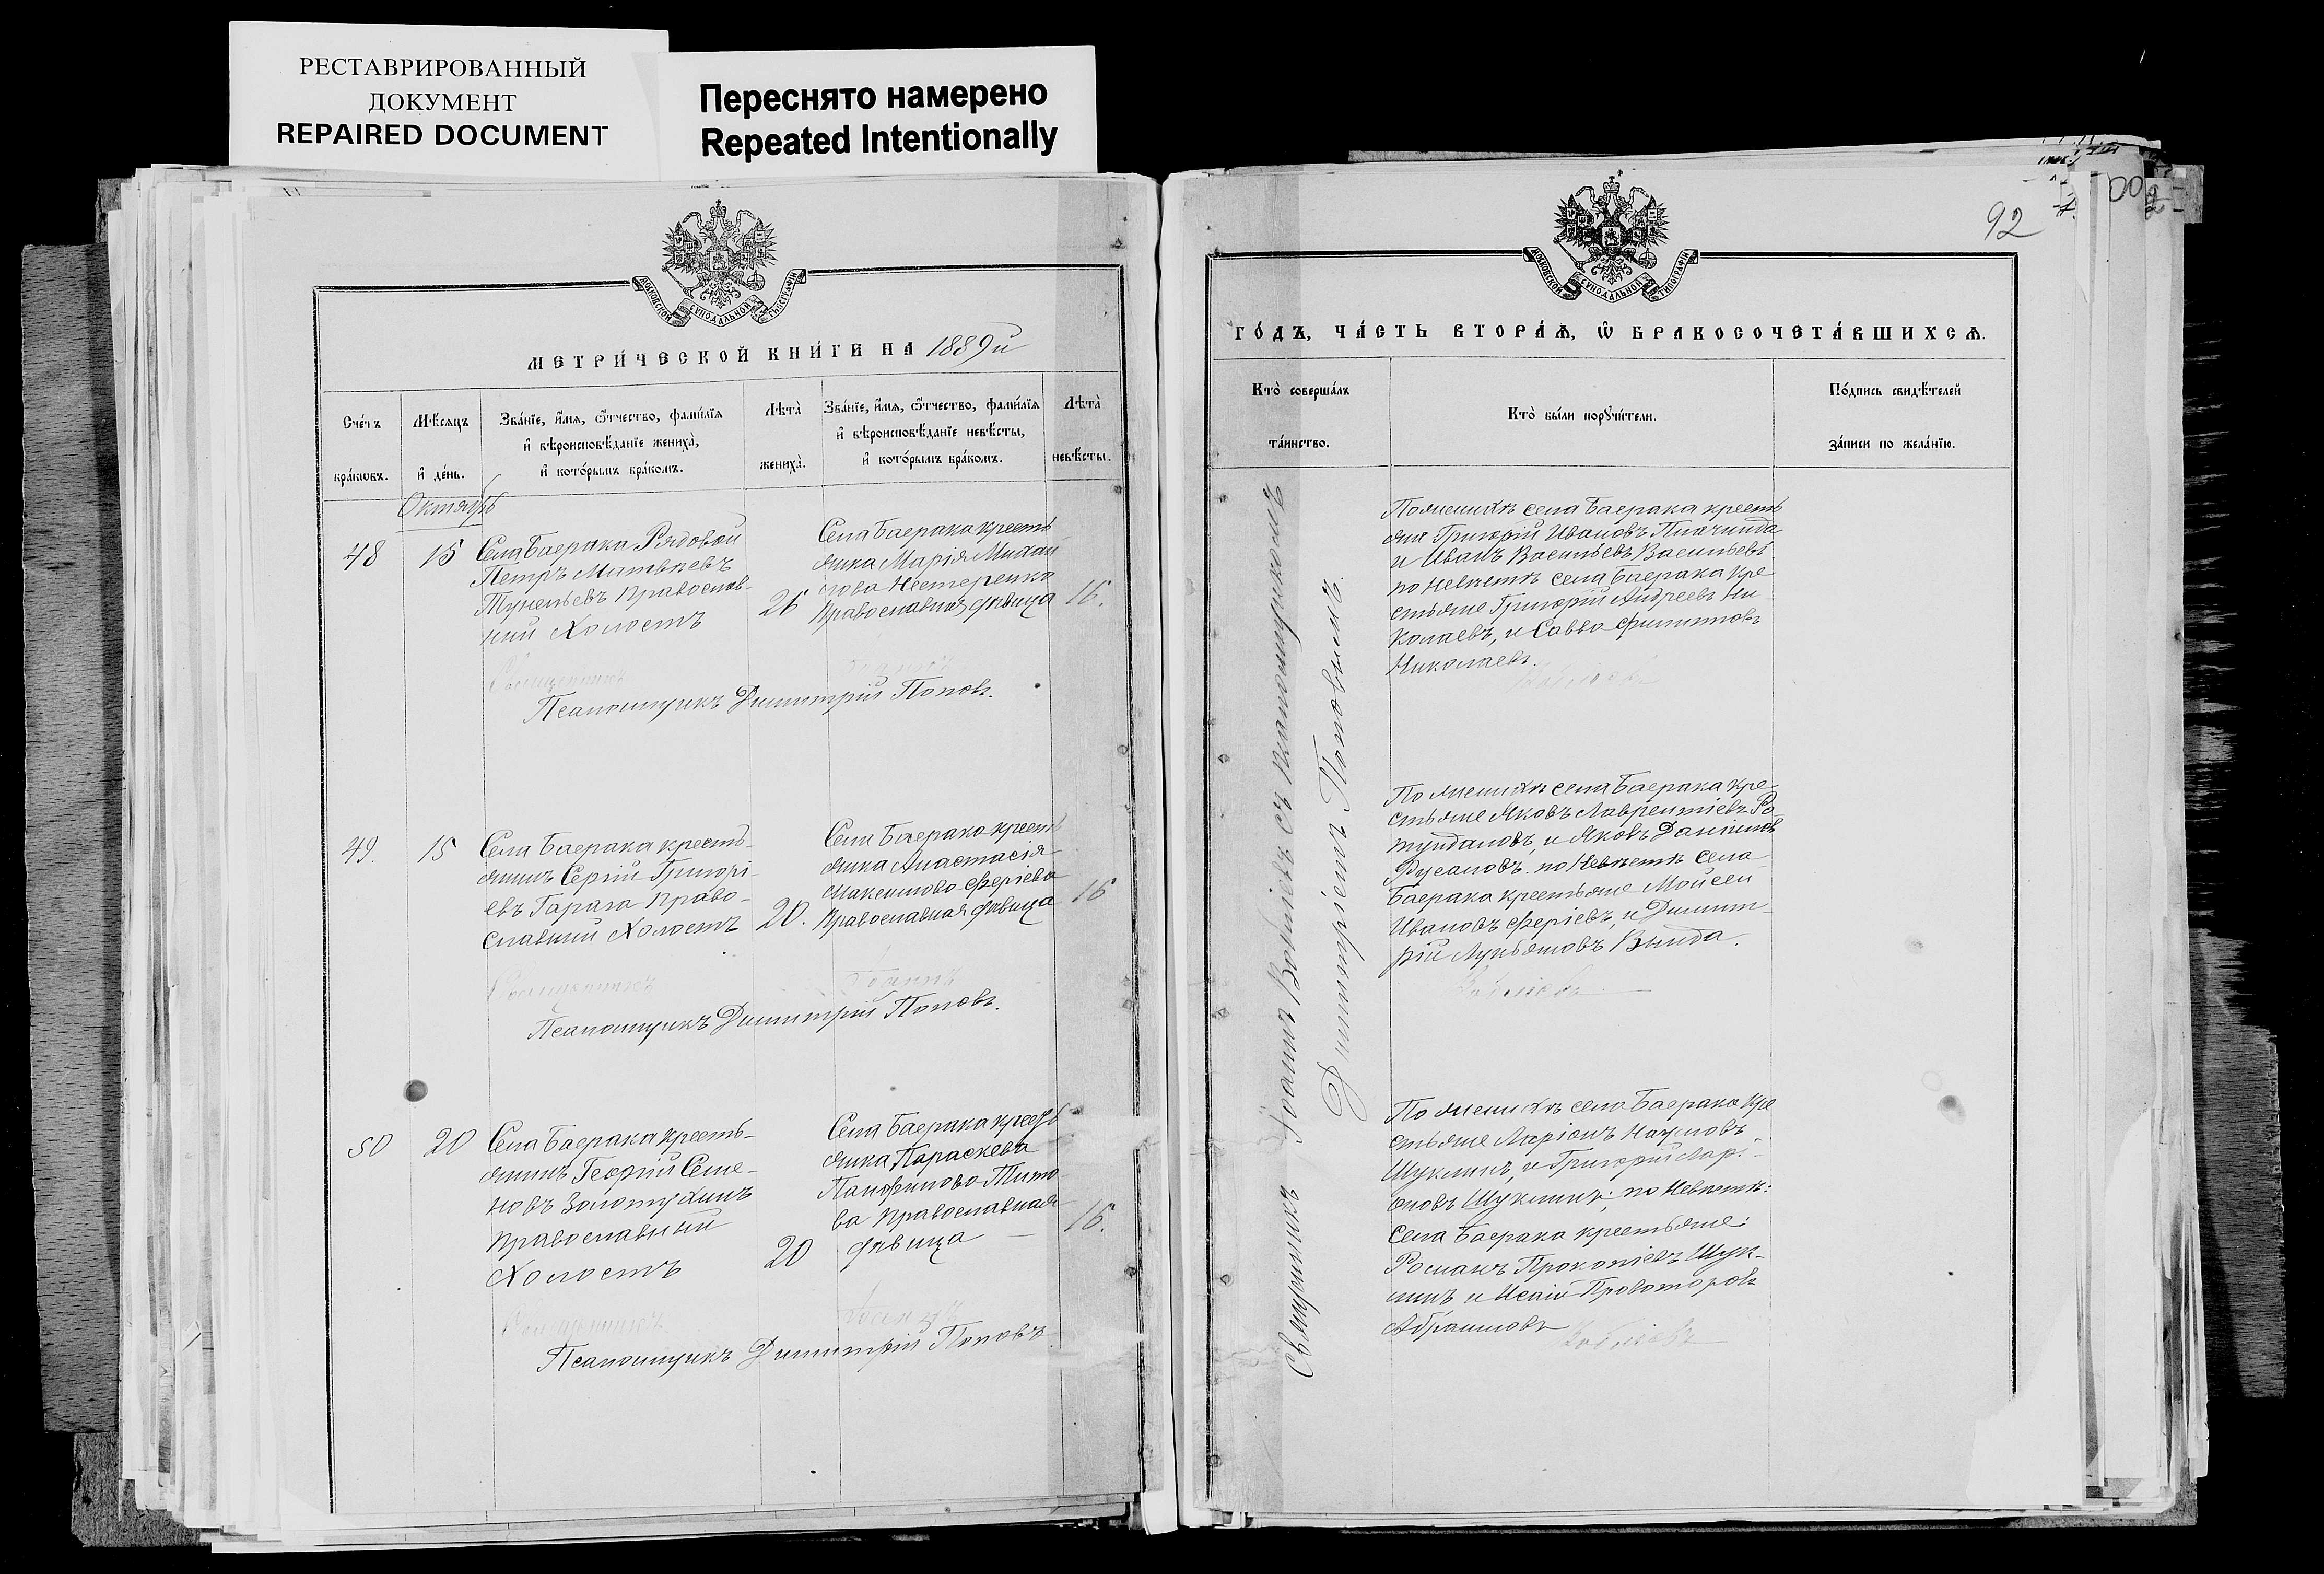 РЕСТАВРИРОВАННЫЙ
ДОКУМЕНТ
REPAIRED DOCUMENT
Переснято намерено
Repeated Intentionally
МОСКОВСКОЙ СѴНОДАЛЬНОЙ ТИПОГРАФІИ
МЕТРИ́ЧЕСКОЙ КНИ́ГИ НА 1889й
Сче́тъ
бра́кѡвъ.
Мѣ́сяцъ
и҆ де́нь.
Зва́нїе, и҆́мѧ, ѻ҆́тчество, фамі́лїѧ
и҆ вѣроисповѣ́данїе жениха̀,
и҆ кото́рымъ бра́комъ.
Лѣта̀
жениха̀.
Зва́нїе, и҆́мѧ, ѻ҆́тчество, фамі́лїѧ
и҆ вѣроисповѣ́данїе невѣ́сты,
и҆ кото́рымъ бра́комъ.
Лѣта̀
невѣ́сты.
Октябрь
48
15
Села Баерака Рядовой
Петръ Матвѣевъ
Православ-
ный Холостъ
26
Села Баерака кресть
янка Марія Михаи
лова Нестеренко
Православная дѣвица
16.
Священникъ Іоаннъ
Псаломщикъ Димитрій Поповъ.
49.
15
Села Баерака кресть-
янинъ Сергій Григорі-
евъ Гарага Право-
славный Холостъ
20.
Села Баерака кресть
янка Анастасія
Максимова Феріева
Православная дѣвица
16
Священникъ Іоаннъ
Псаломщикъ Димитрій Поповъ.
50
20
Села Баерака кресть-
янинъ Георгій Семе-
новъ Золотухинъ
Православный
Холостъ
20
Села Баерака кресть
янка Параскева
Панфилова Тито
ва Православная
дѣвица
16.
Священникъ Іоаннъ
Псаломщикъ Димитрій Поповъ
92
ГО́ДЪ, ЧА́СТЬ ВТОРА́Ѧ, Ѡ҆ БРАКОСОЧЕТА́ВШИХСѦ.
Кто̀ соверша́лъ
та́инство.
Кто̀ бы́ли порꙋчи́тели.
По́дпись свидѣ́телей
за́писи по жела́нїю.
Священникъ Іоаннъ съ псаломщикомъ
Димитріемъ Поповымъ.
По женихѣ села Баерака кресть
яне Григорій Ивановъ
и Иванъ Васильевъ Васильевъ
по Невѣстѣ села Баерака кре
стьяне Григорій Андреевъ Ни-
колаевъ, и Савва Филипповъ
Николаевъ.
По женихѣ села Баерака кре-
стьяне Яковъ Лаврентіевъ
и Яковъ Даниловъ
Русановъ. по Невѣстѣ села
Баерака крестьяне Моисей
Ивановъ Феріевъ, и Димит-
рій Лукьяновъ
По женихѣ села Баерака кре
стьяне Ларіонъ Наумовъ
Шуклинъ, и Григорій Лари-
оновъ Шуклинъ; по Невѣстѣ:
села Баерака крестьяне:
Романъ Прокопіевъ Шук-
линъ, и Исаій Провоторовъ
Абрамовъ